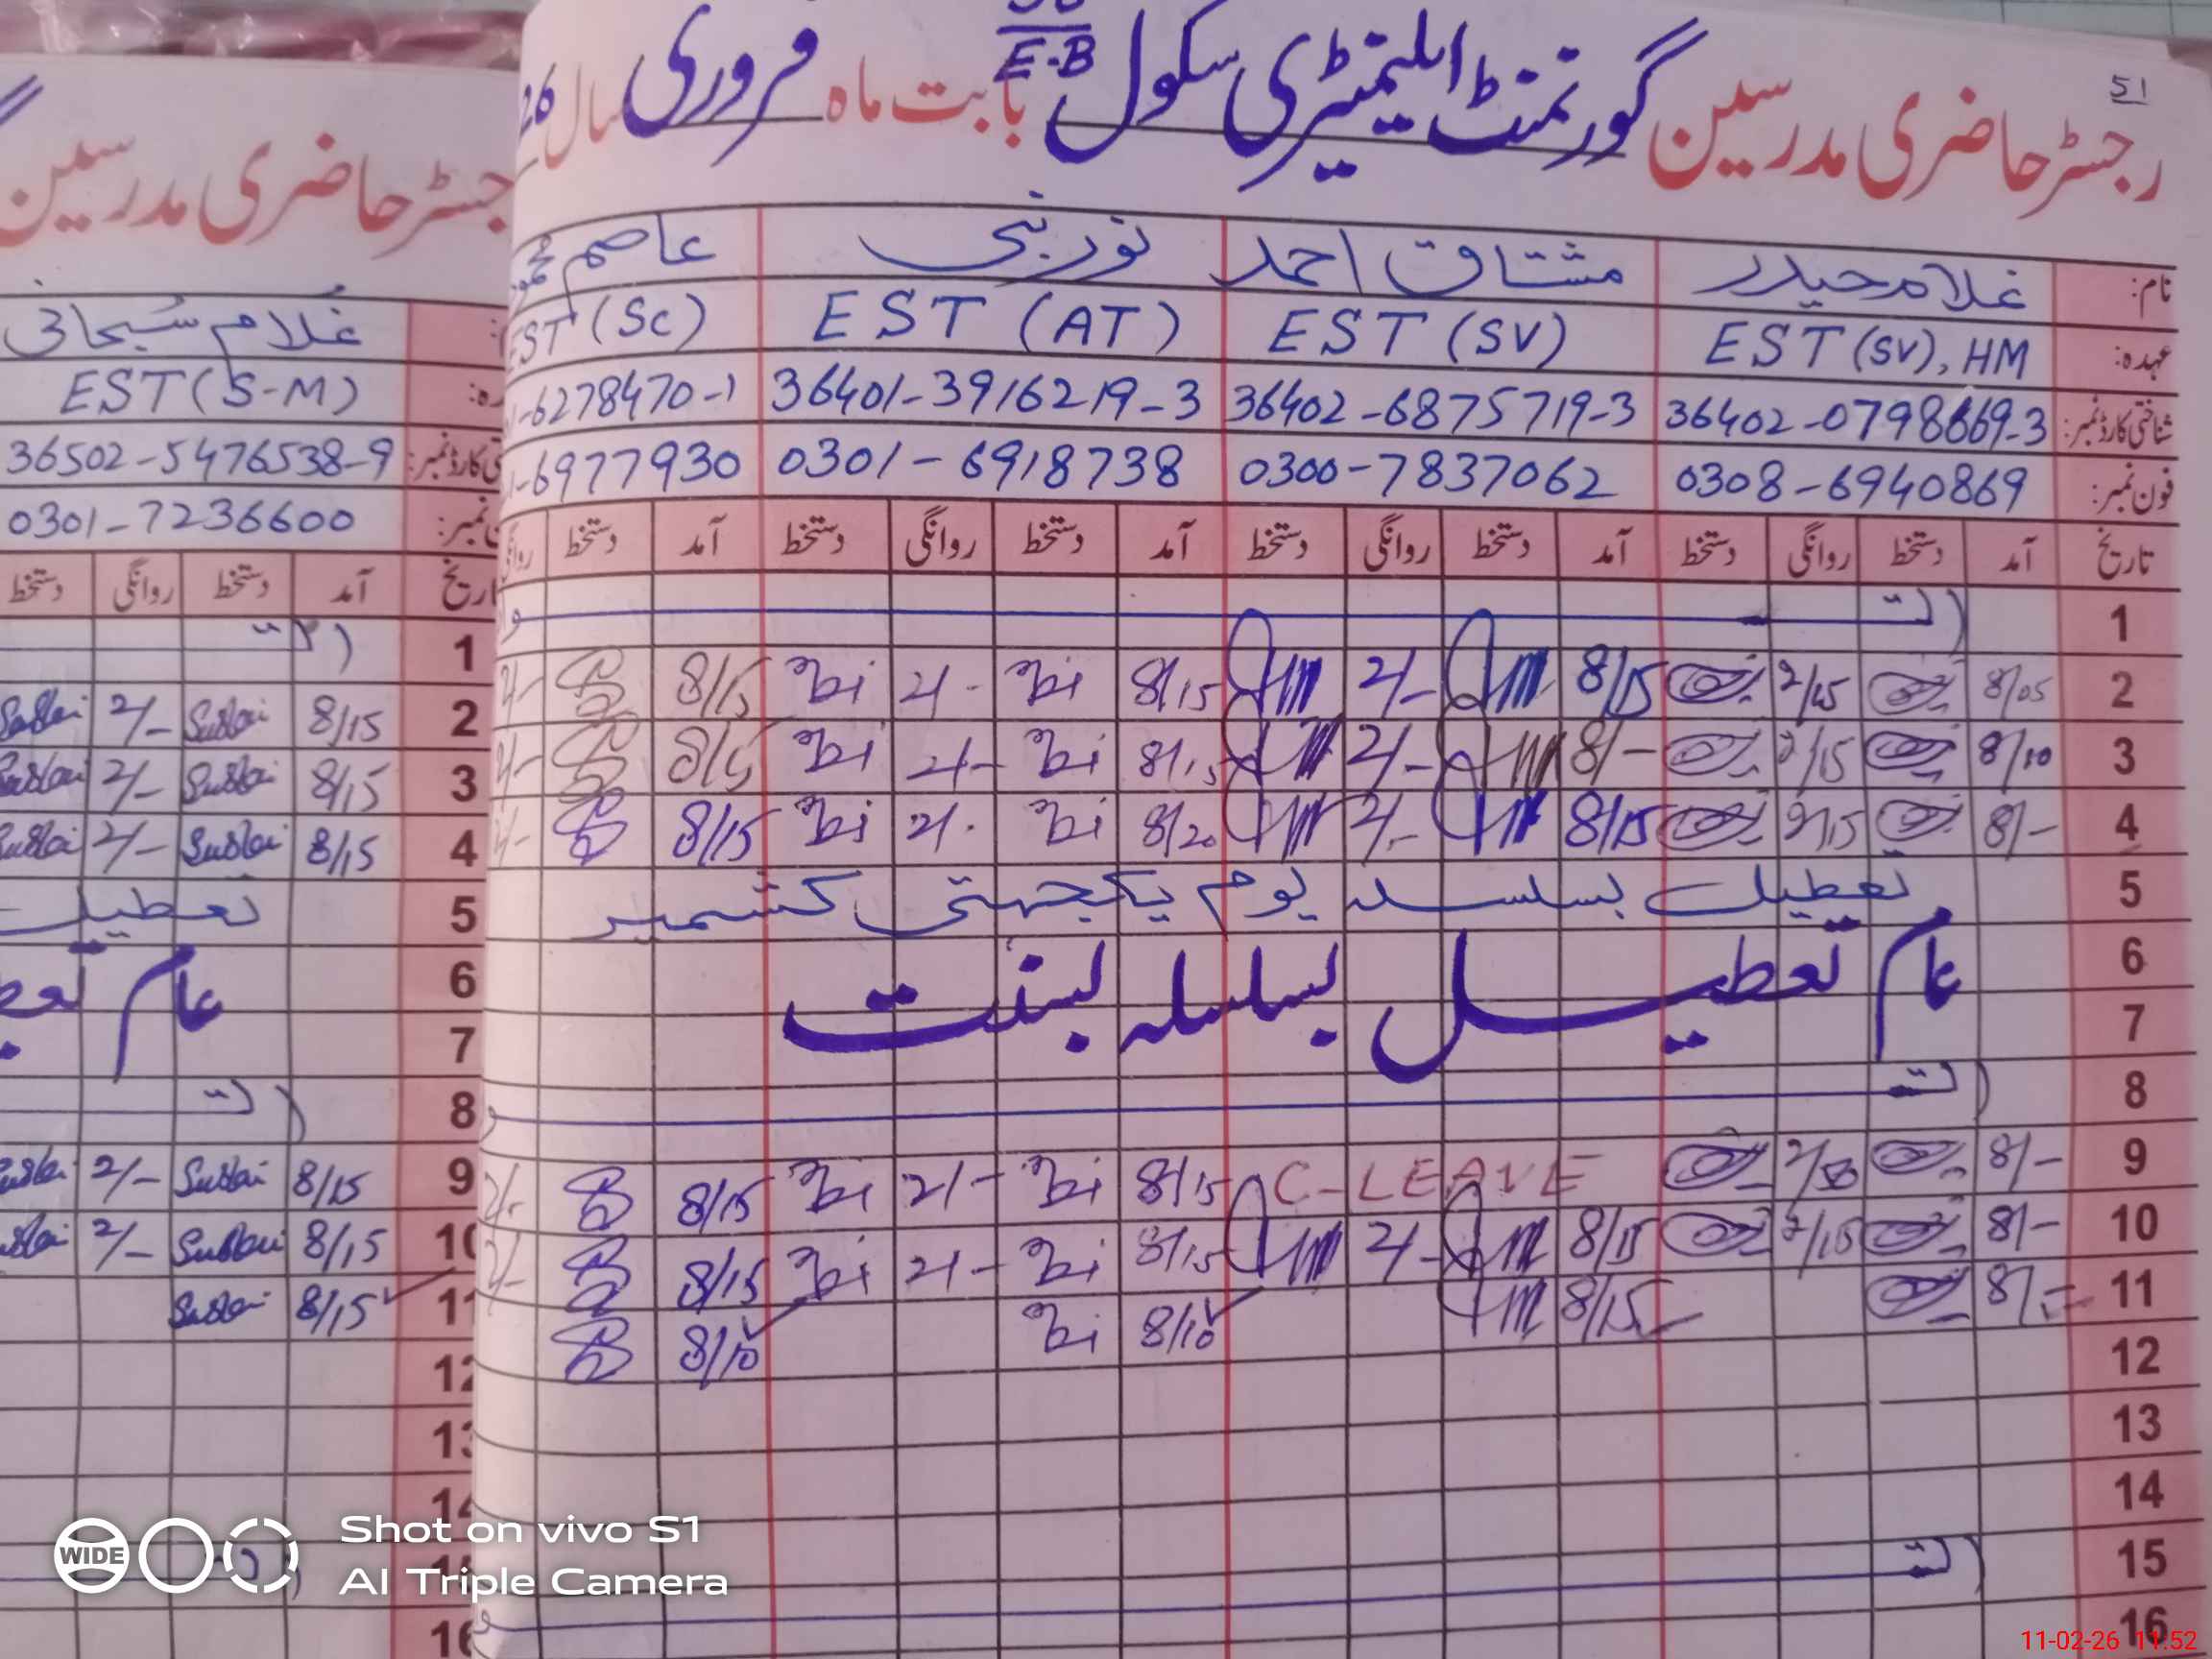 51
رجسٹر حاضری مدرسین گورنمنٹ ایلیمنٹری سکول E.B بابت ماہ فروری سال 26
نام: غلام حیدر مشتاق احمد نور نبی عاصم محمود
عہدہ: EST (SV), HM EST (SV) EST (AT) EST (Sc)
شناختی کارڈ نمبر: 36402-0798669-3 36402-6875719-3 36401-3916219-3 -6278470-1
فون نمبر: 0308-6940869 0300-7837062 0301-6918738 -6977930
تاریخ آمد دستخط روانگی دستخط آمد دستخط روانگی دستخط آمد دستخط روانگی دستخط آمد دستخط روانگی
1 اتوار
2 8/05 2/15 8/15 2/- 8/15 2/- 8/15 2/-
3 8/10 2/15 8/- 2/- 8/15 2/- 8/15 2/-
4 8/- 2/15 8/15 2/- 8/20 2/- 8/15 2/-
5 تعطیل بسلسلہ یوم یکجہتی کشمیر
6 عام تعطیل بسلسلہ بسنت
7
8 اتوار
9 8/- C-LEAVE 8/15 2/- 8/15 2/-
10 8/- 2/15 8/15 2/- 8/15 2/- 8/15 2/-
11 8/- 8/15 8/10 8/10
12
13
14
15 اتوار
16
رجسٹر حاضری مدرسین
غلام سبحانی
EST (S-M)
36502-5476538-9
0301-7236600
تاریخ آمد دستخط روانگی دستخط
1 اتوار
2 8/15 2/-
3 8/15 2/-
4 8/15 2/-
5 تعطیل
6 عام
7
8 اتوار
9 8/15 2/-
10 8/15 2/-
11 8/15
12
13
14
15
16
WIDE
Shot on vivo S1
AI Triple Camera
11-02-26 11:52